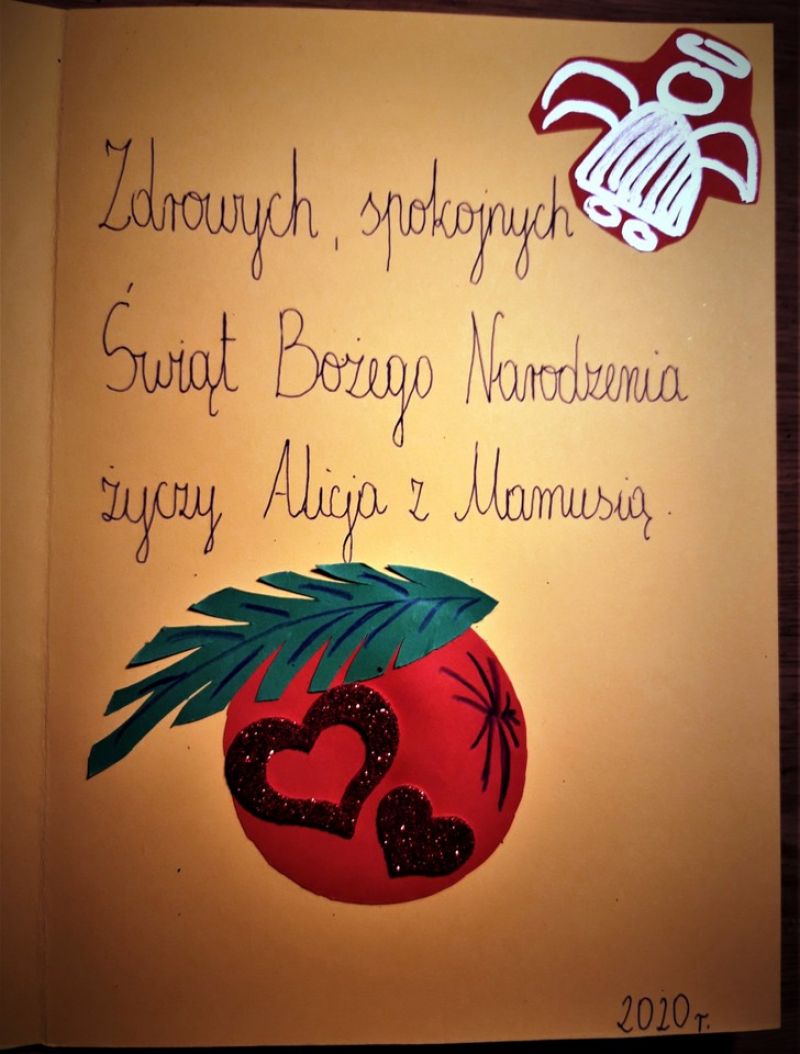 Zdrowych, spokojnych
Świąt Bożego Narodzenia
życzy Alicja z Mamusią.
2020 r.